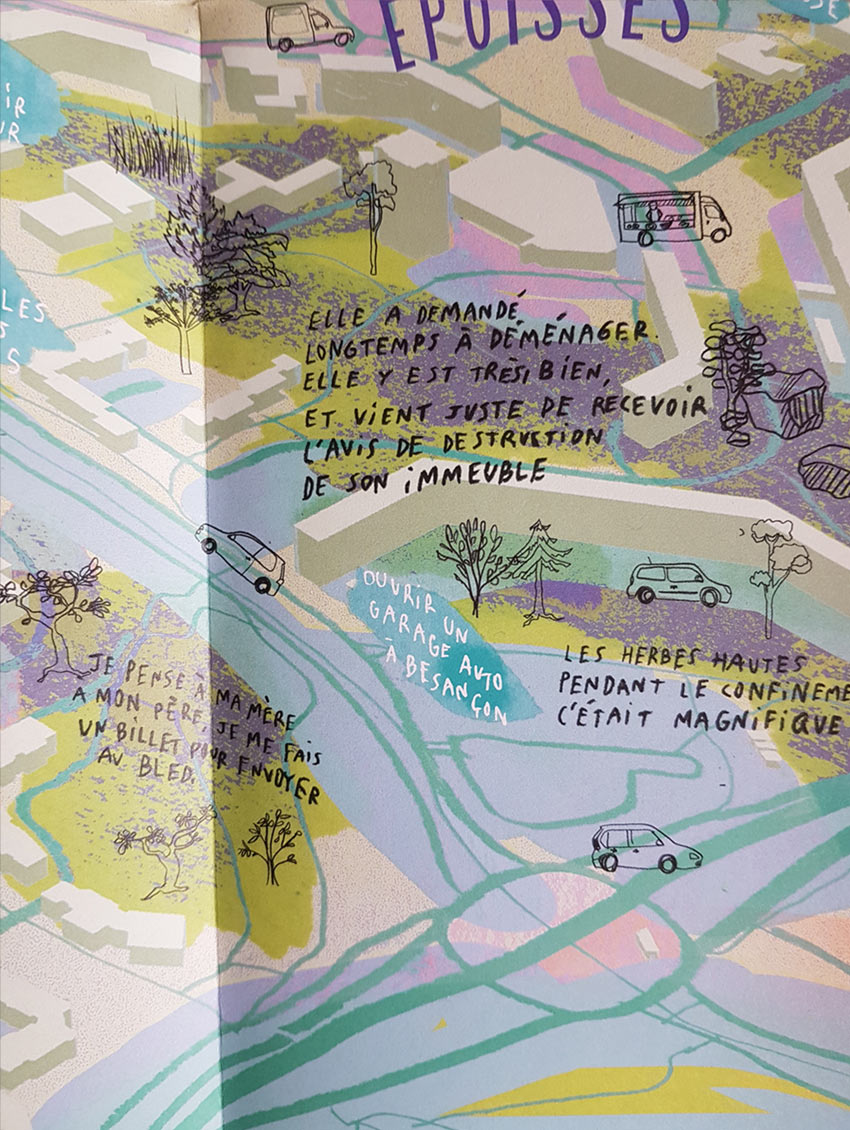 EPOISSES
IR
UR
LES
S
S
ELLE A DEMANDÉ
LONGTEMPS À DÉMÉNAGER.
ELLE Y EST TRÈS, BIEN,
ET VIENT JUSTE DE RECEVOIR
L'AVIS DE DESTRUCTION
DE SON IMMEUBLE
OUVRIR UN
GARAGE AUTO
À BESANÇON
LES HERBES HAUTES
PENDANT LE CONFINEME
C'ÉTAIT MAGNIFIQUE
JE PENSE À MA MÈRE
A MON PÈRE, JE ME FAIS
UN BILLET POUR ENVOYER
AU BLED.